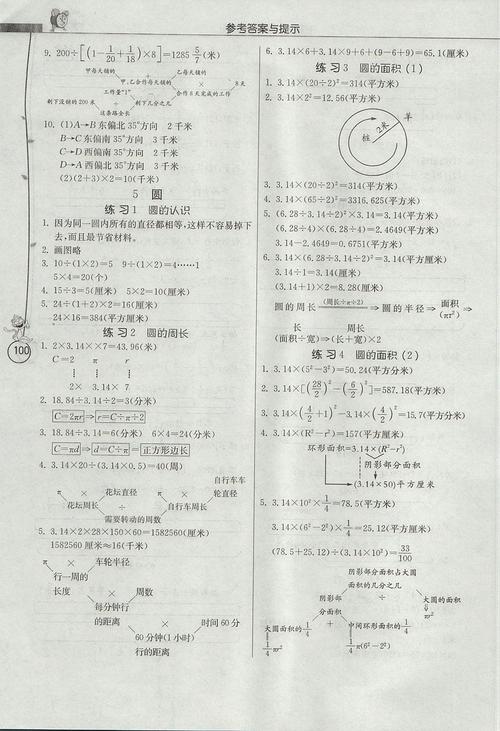 参考答案与提示
9. 200÷[(1-1/20+1/18)×8]=1285 5/7(米)
甲每天铺的 乙每天铺的
甲、乙合作每天铺的 8天
工作量"1" 8天完成的工作
剩下没铺的200米 剩下几分之几
这条路全长
10. (1)A→B 东偏北35°方向 2千米
B→C 东偏南35°方向 3千米
C→D 西偏南35°方向 2千米
D→A 西偏南35°方向 3千米
(2)(2+3)×2=10(千米)
5 圆
练习1 圆的认识
1. 因为同一圆内所有的直径都相等,这样不容易掉下
去,而且最节省材料。
2. 画图略
3. 10÷(1×2)=5 9÷(1×2)=4……1
5×4=20(个)
4. 15÷3=5(厘米) 5×2=10(厘米)
5. 24÷(1+2)×2=16(厘米)
24×16=384(平方厘米)
练习2 圆的周长
1. 2×3.14××7=43.96(厘米)
C=2 π r
2× 3.14× 7
2. 18.84÷3.14÷2=3(厘米)
C=2πr ⇒ r=C÷π÷2
3. 18.84÷3.14=6(分米) 6×4=24(分米)
C=πd ⇒ d=C÷π = 正方形边长
4. 3.14×20÷(3.14×0.5)=40(周)
自行车车
π × 花坛直径 π × 轮直径
花坛周长 ÷ 自行车周长
需要转动的周数
5. 3.14×2×28×150×60=1582560(厘米)
1582560厘米≈16(千米)
π × 车轮半径
行一周的
长度 × 周数
每分钟行
的距离 × 时间60分
60分钟(1小时)
行的距离
100
6. 3.14×6+3.14×9+6+(9-6+9)=65.1(厘米)
练习3 圆的面积(1)
1. 3.14×(20÷2)²=314(平方米)
2. 3.14×2²=12.56(平方米)
羊
桩 2米
3. 3.14×(20÷2)²=314(平方米)
4. 3.14×(65÷2)²=3316.625(平方厘米)
5. (6.28÷3.14÷2)²×3.14=3.14(平方米)
(6.28÷4)×(6.28÷4)=2.4649(平方米)
3.14-2.4649=0.6751(平方米)
6. 3.14×(6.28÷3.14÷2)²=3.14(平方厘米)
3.14÷1=3.14(厘米)
(3.14+1)×2=8.28(厘米)
圆的周长 C÷π÷2 ⇒ 圆的半径 ⇒ 面积(πr²)
长 周长
(面积÷宽) ⇒ (长+宽)×2
练习4 圆的面积(2)
1. 3.14×(5²-3²)=50.24(平方分米)
2. 3.14×[(28/2)²-(6/2)²]=587.18(平方米)
3. 3.14×(4/2+1)²-3.14×(4/2)²=15.7(平方分米)
4. 3.14×(R²-r²)=157(平方厘米)
环形面积=3.14×(R²-r²)
阴影部分面积
(3.14×50)平方厘米
5. 3.14×10²×1/4=78.5(平方厘米)
3.14×(6²-2²)×1/4=25.12(平方厘米)
(78.5+25.12)÷(3.14×10²)=33/100
阴影部分面积占大圆
面积的几分之几
阴影部 ÷ 大圆的
分面积 面积
大圆面积的1/4 + 中间环形面积的1/4 πr²
1/4πr² 1/4π(6²-2²)